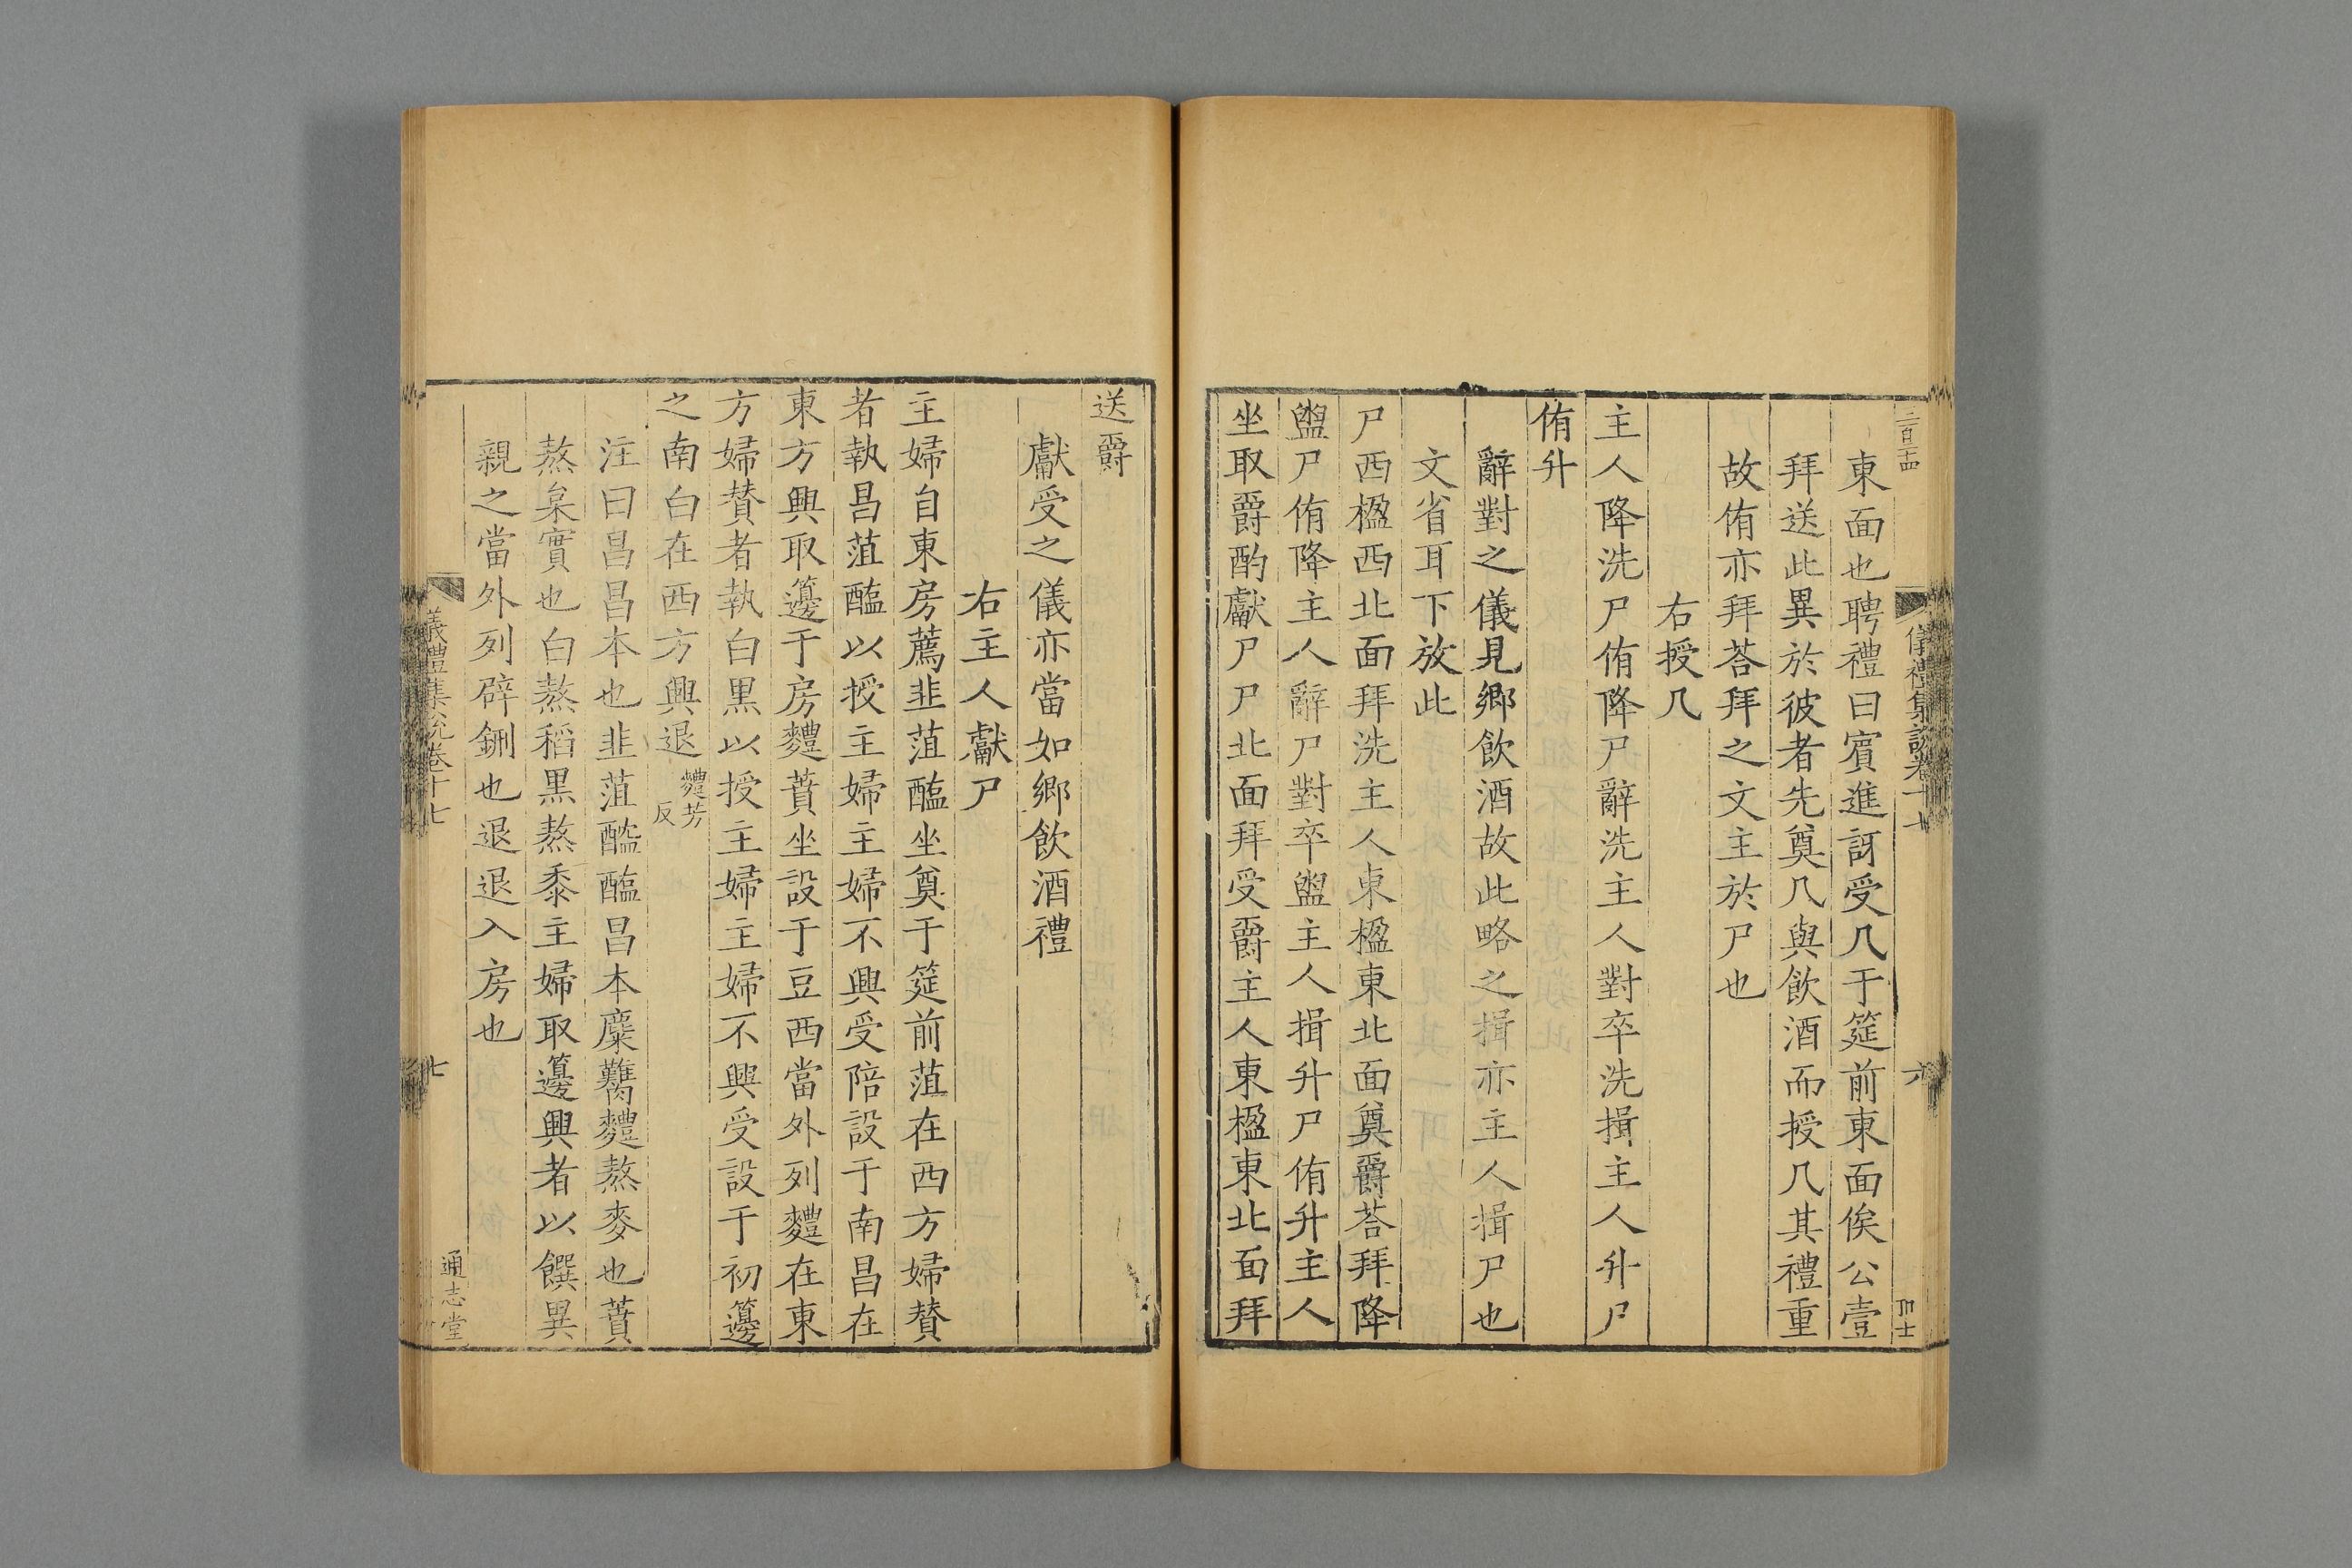 二百二十四
儀禮集說卷十七
六
東面也聘禮曰賓進訝受几于筵前東面俟公壹
拜送此異於彼者先奠几與飲酒而授几其禮重
故侑亦拜荅拜之文主於尸也
右授几
主人降洗尸侑降尸辭洗主人對卒洗揖主人升尸
侑升
辭對之儀見鄉飲酒故此略之揖亦主人揖尸也
文省耳下放此
尸西楹西北面拜洗主人東楹東北面奠爵荅拜降
盥尸侑降主人辭尸對卒盥主人揖升尸侑升主人
坐取爵酌獻尸尸北面拜受爵主人東楹東北面拜
送爵
獻受之儀亦當如鄉飲酒禮
右主人獻尸
主婦自東房薦韭菹醢坐奠于筵前菹在西方婦贊
者執昌菹醢以授主婦主婦不興受陪設于南昌在
東方興取籩于房麷蕡坐設于豆西當外列麷在東
方婦贊者執白黑以授主婦主婦不興受設于初籩
之南白在西方興退麷芳反
注曰昌昌本也韭菹醓醢昌本麋臡麷熬麥也蕡
熬枲實也白熬稻黑熬黍主婦取籩興者以饌異
親之當外列辟鉶也退退入房也
儀禮集說卷十七
七
通志堂